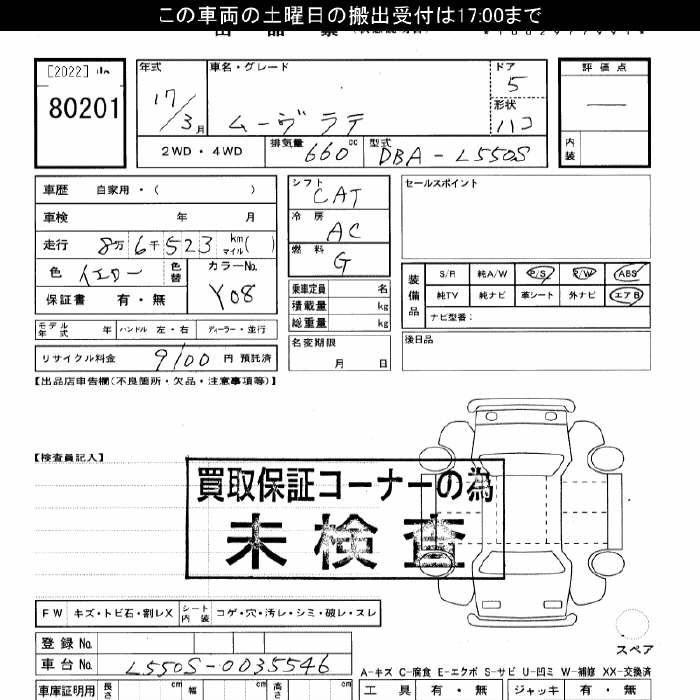 この車両の土曜日の搬出受付は17:00まで
[2022]
80201
年式
17/3月
車名・グレード
ムーヴラテ
ドア
5
形状
ハコ
評価点
—
内装
2WD・4WD
排気量
660cc
型式
DBA-L550S
車歴 自家用・( )
車検 年 月
走行 8万6千523 km マイル( )
色 イエロー 色替
カラーNo.
Y08
保証書 有・無
モデル年式 年 ハンドル 左・右 ディーラー・並行
リサイクル料金 9100 円 預託済
シフト
CAT
冷房
AC
燃料
G
乗車定員 名
積載量 kg
総重量 kg
名変期限
月 日
セールスポイント
装備品
S/R 純A/W P/S P/W ABS
純TV 純ナビ 革シート 外ナビ エアB
ナビ型番:
後日品
【出品店申告欄(不良箇所・欠品・注意事項等)】
【検査員記入】
買取保証コーナーの為
未検査
FW キズ・トビ石・割レX シート内装 コゲ・穴・汚レ・シミ・破レ・スレ
スペア
登録No.
車台No. L550S-0035546
A-キズ C-腐食 E-エクボ S-サビ U-凹ミ W-補修 XX-交換済
車庫証明用 長さ cm 幅 cm 高さ cm
工具 有・無 ジャッキ 有・無